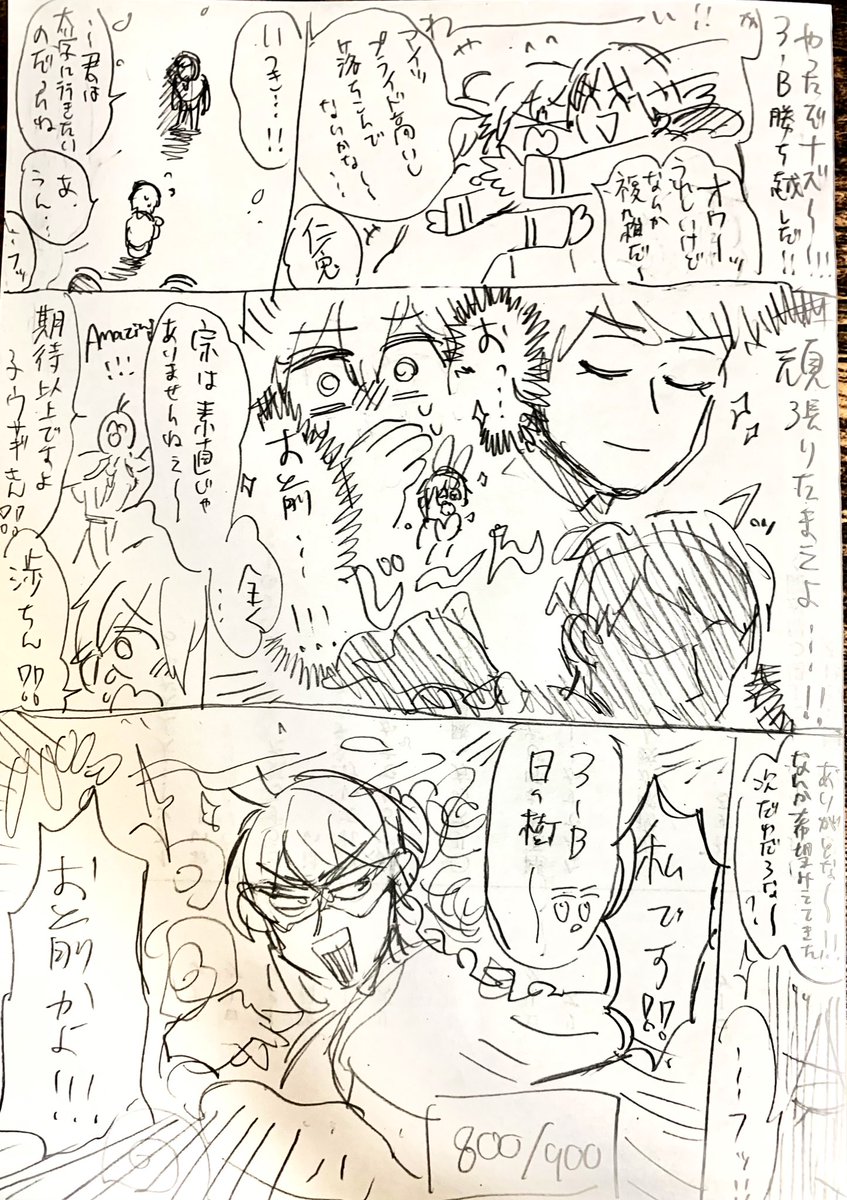 やったぞナズ〜〜!!!
3-B勝ち越しだ!!
わ
い
!!
オウーッ
うれしいけど
なんか
複雑だ〜
アイツ
プライド高いし
落ちこんで
ないかな〜…
仁兎
いつき…!!
…君は
大学に行きたい
のだろうね
あ、
うん…
…フッ
頑張りたまえよ…!!
おっ…
お前……!!!
じーん
宗は素直じゃ
ありませんねぇ〜
全く
…
Amazing
!!!
期待以上ですよ
子ウサギさん!!
渉ちん!!
ありがとな〜!!
なんか希望みえてきた
次だれだろな〜
?!
…フッ!!
私です!!
3-B
日々樹
お前かよ!!!
800/900